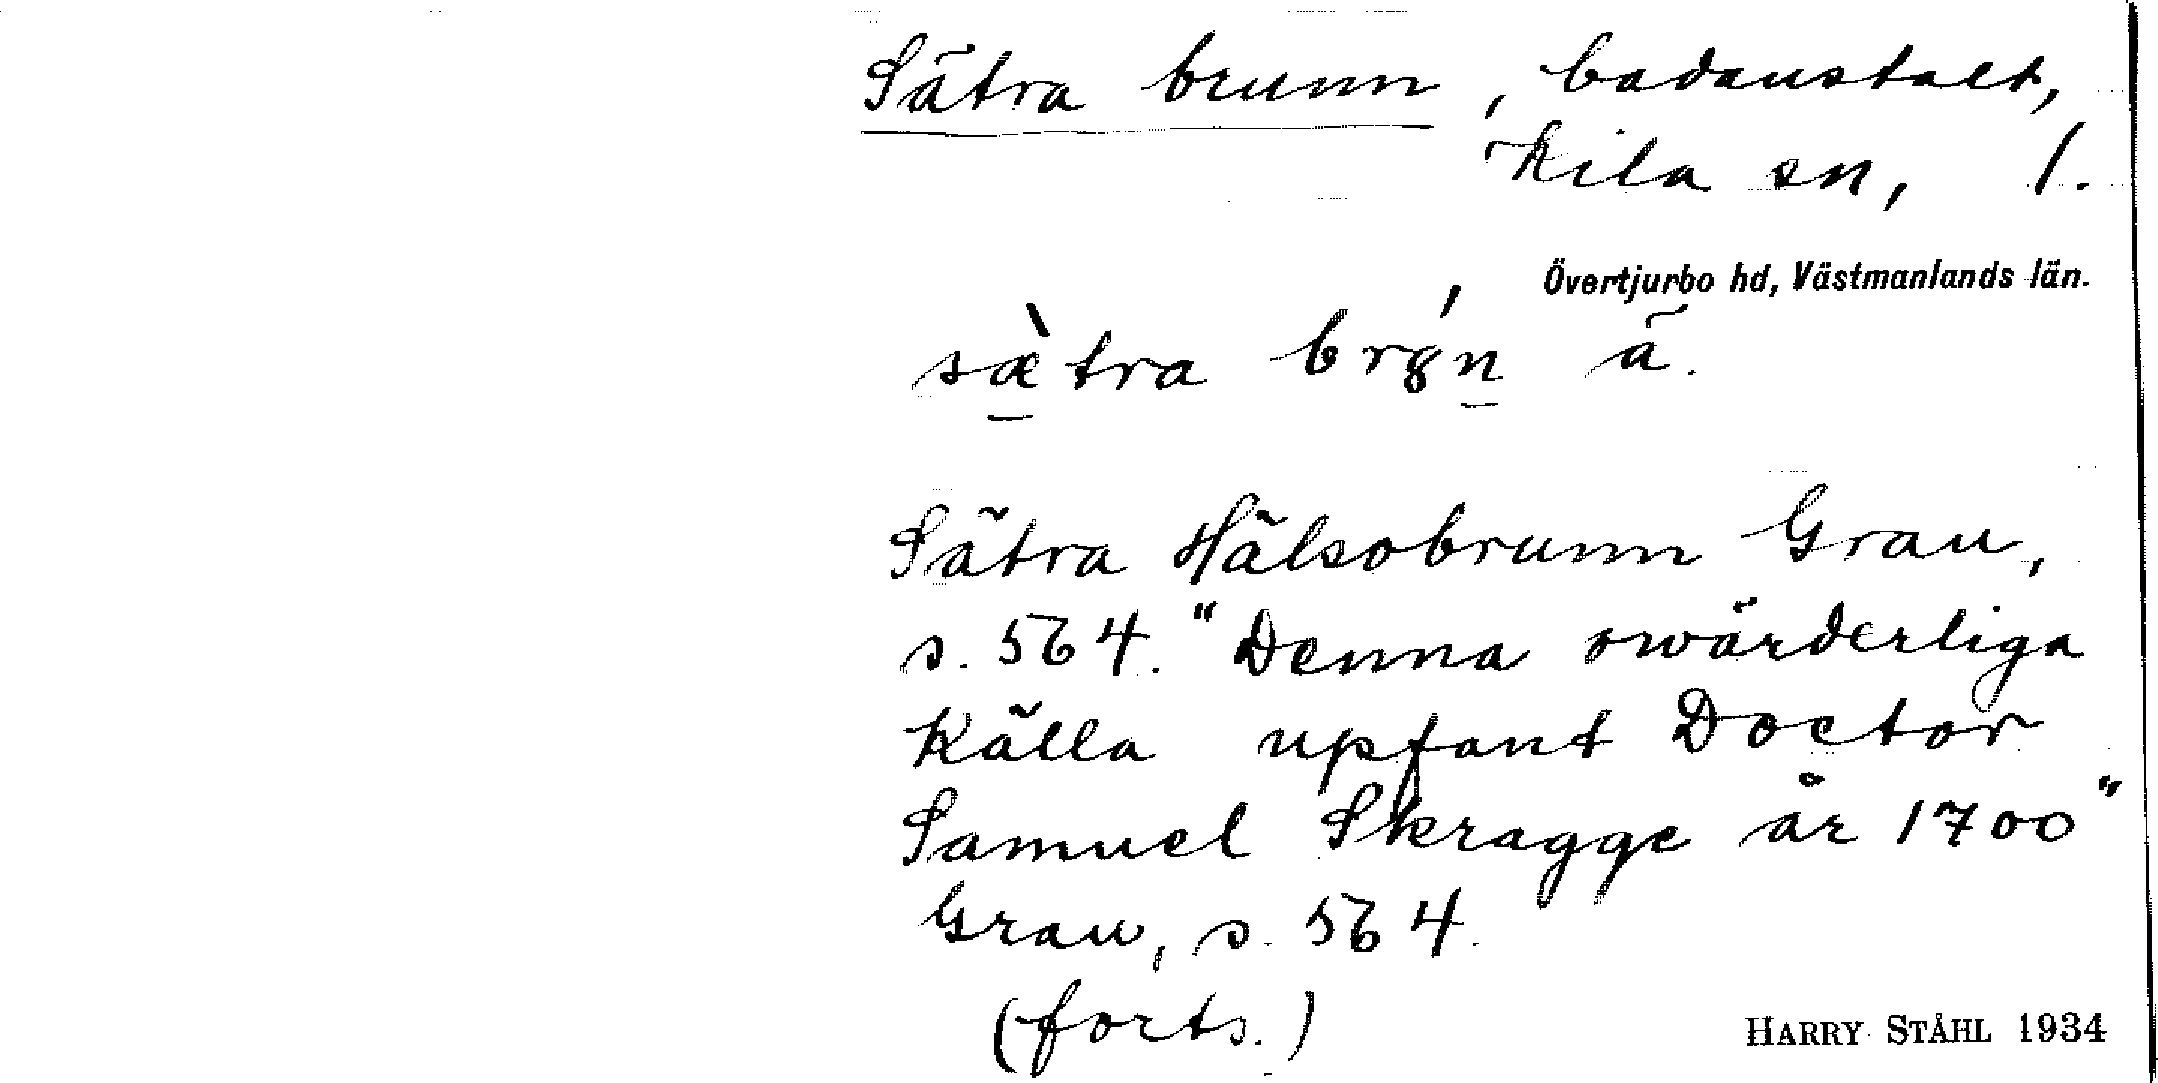 Sätra brunn, badanstalt,
Kila sn, 1.
Övertjurbo hd, Västmanlands län.
sæ̀tra br8́n ä.
Sätra Hälsobrunn Grau,
s. 564. "Denna owärderliga
Källa upfant Doctor
Samuel Skragge år 1700"
Grau, s. 564.
(forts.)
HARRY STÅHL 1934